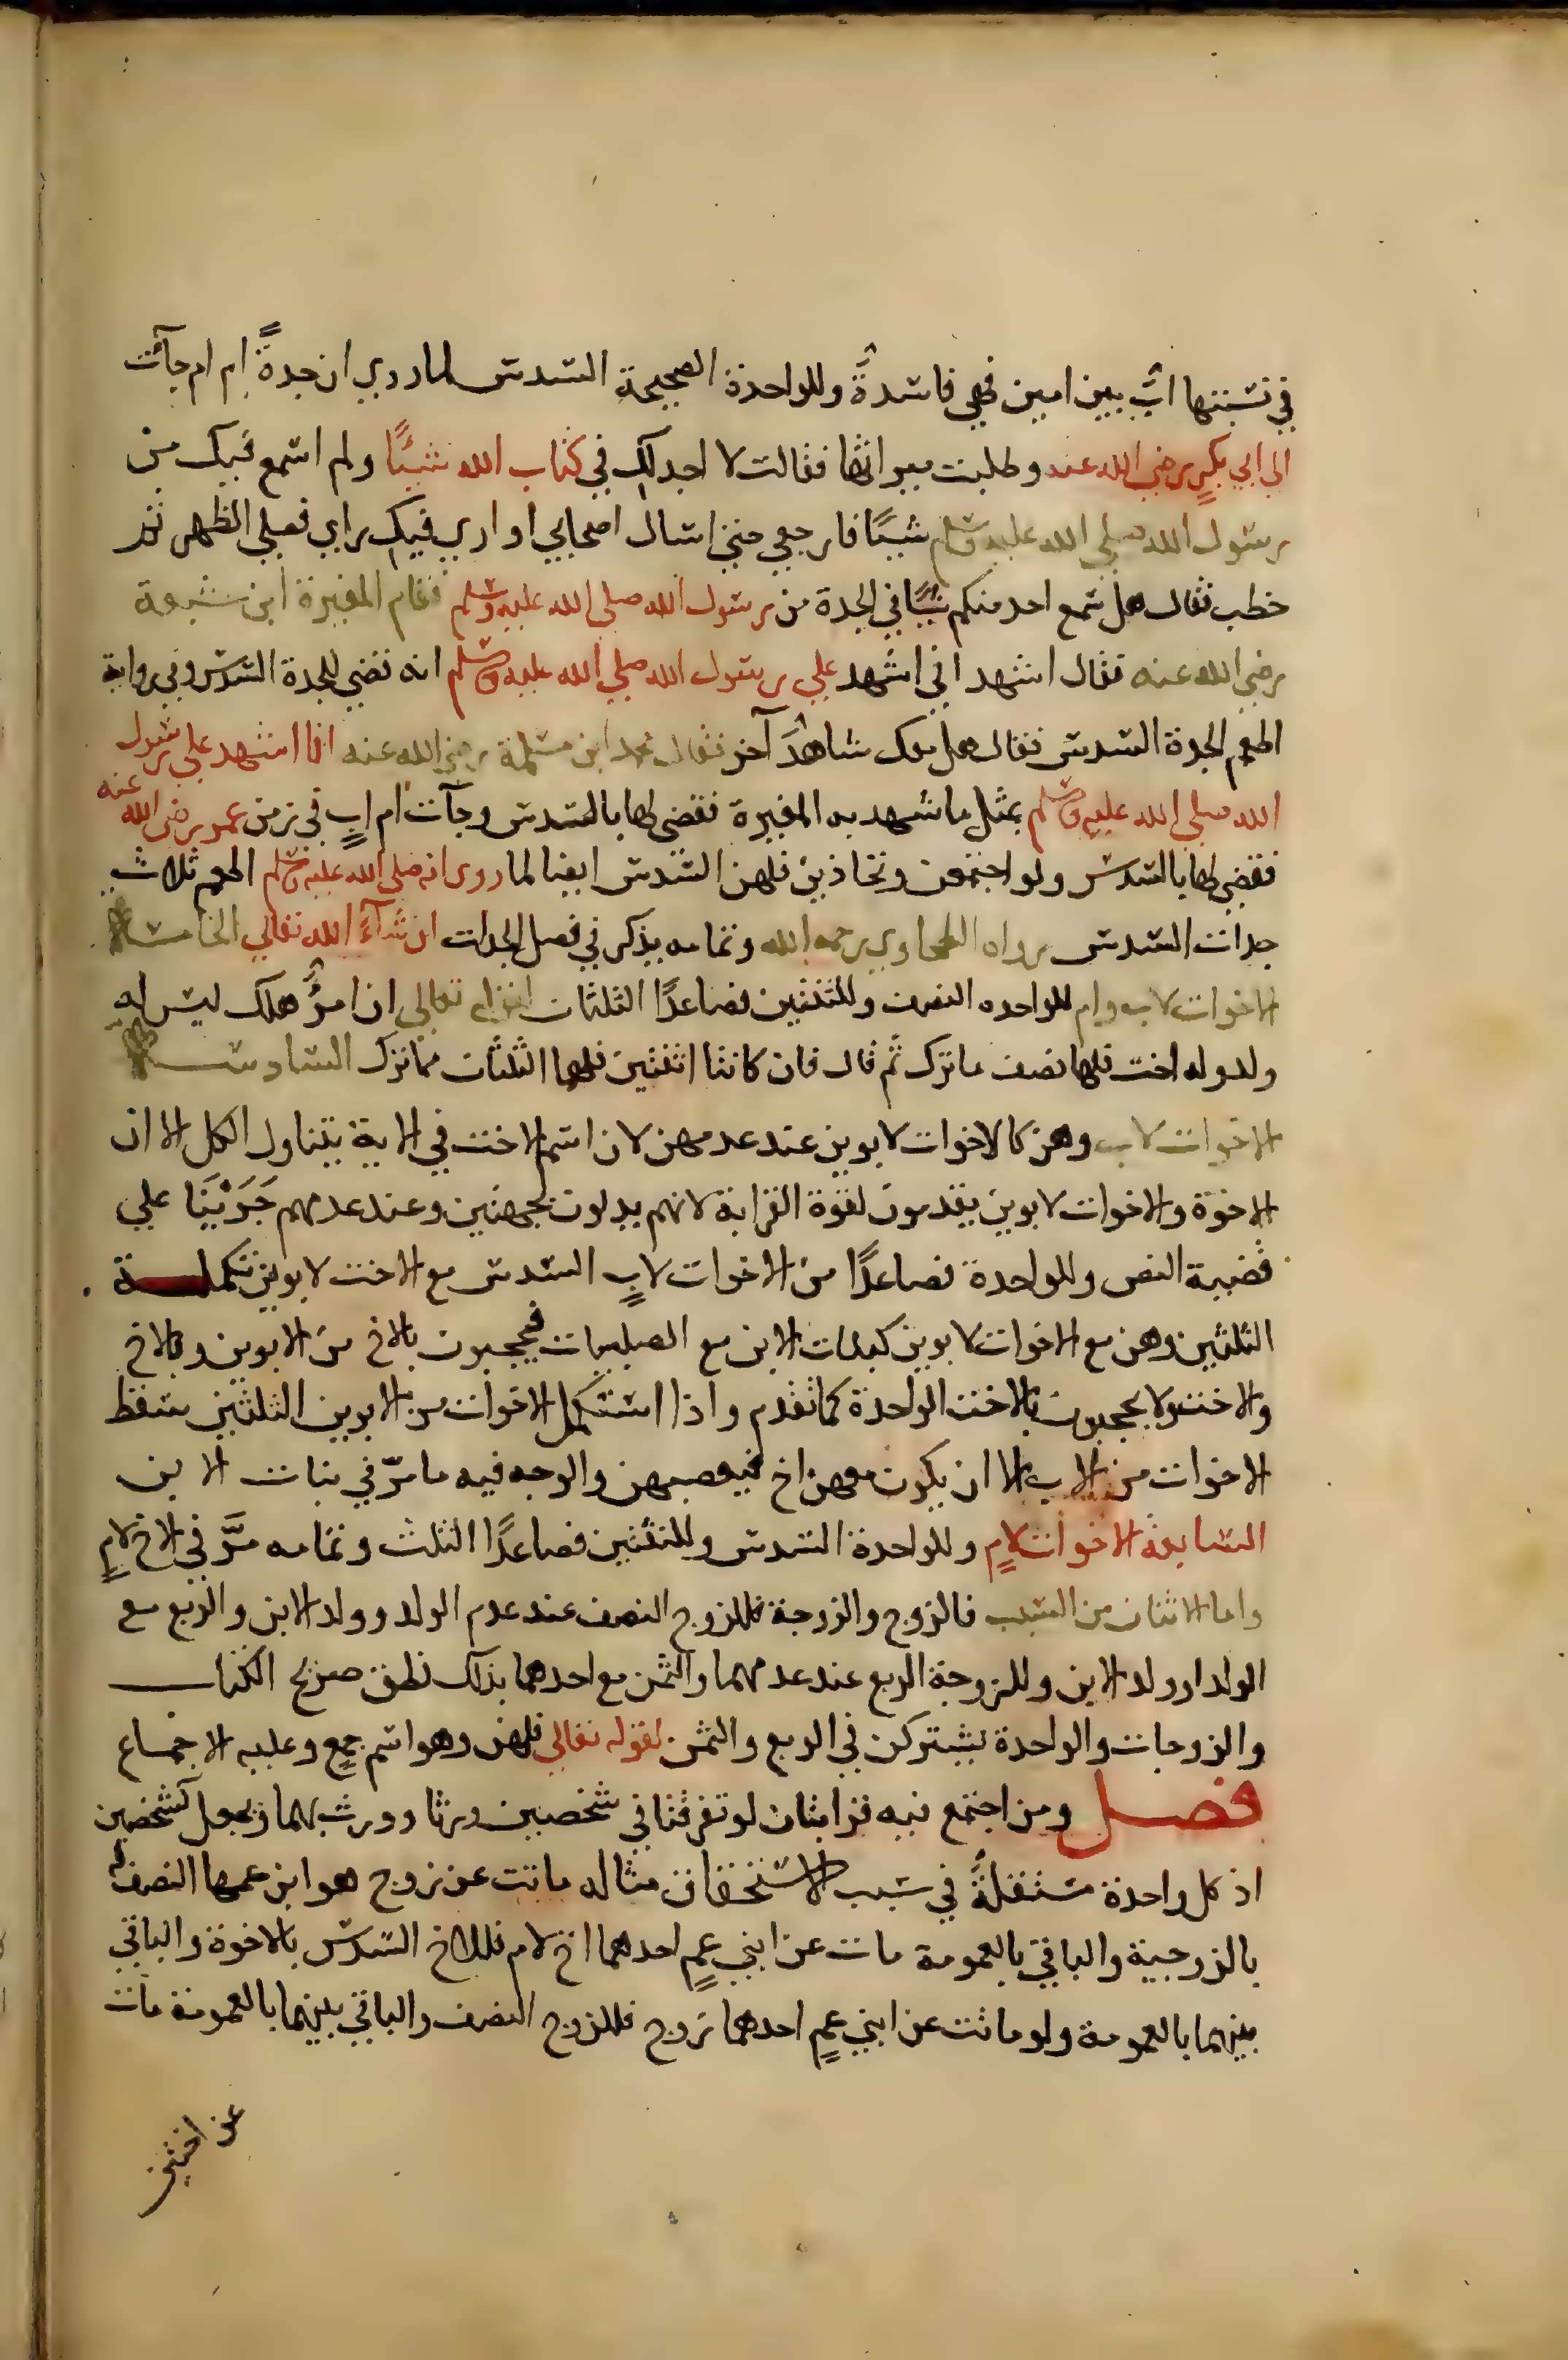 في نسبتها ابٌ بين امين فهي فاسدةٌ وللواحدة الصحيحة السدس لما روي ان جدةً ام ام جآئت
الي ابي بكرٍ رضي الله عنه وطلبت ميراثها فقالت لا اجد لك في كتاب الله شيئًا ولم اسمع فيك من
رسول الله صلي الله عليه وسلم شيئًا فارجعي حتي اسال اصحابي او اري فيك راي فصلي الظهر ثم
خطب فقال هل سمع احد منكم شيئًا في الجدة من رسول الله صلي الله عليه وسلم فقام المغيرة ابن شعبة
رضي الله عنه فقال اشهد اني اشهد علي رسول الله صلي الله عليه وسلم انه قضي للجدة السدس وفي رواية
اطعم الجدة السدس فقال هل معك شاهدٌ آخر فقال محمد ابن مسلمة رضي الله عنه انا اشهد علي رسول
الله صلي الله عليه وسلم بمثل ما شهد به المغيرة فقضي لها بالسدس وجآت ام ابٍ في زمن عمر رضي الله عنه
فقضي لها بالسدس ولو اجتمعن وتحاذين فلهن السدس ايضا لما روي انه صلي الله عليه وسلم اطعم ثلاث
جدات السدس رواه الطحاوي رحمه الله وتمامه يذكر في فصل الجدات ان شآءَ الله تعالي الخامسة
الاخوات لاب وام للواحده النصف وللثنتين فصاعدًا الثلثان لقوله تعالي ان امرؤٌ هلك ليس له
ولد وله اخت فلها نصف ما ترك ثم قال فان كانتا اثنتين فلهما الثلثان مما ترك السادسة
الاخوات لاب وهن كالاخوات لابوين عند عدمهن لان اسم الاخت في الاية يتناول الكل الا ان
الاخوة والاخوات لابوين يقدمون لقوة القرابة لانهم يدلون بجهتين وعند عدمهم جَرَيْنَا علي
قضية النص وللواحدة فصاعدًا من الاخوات لابٍ السدس مع الاخت لابوين تكملة
الثلثين وهن مع الاخوات لابوين كبنات الابن مع الصلبيات فيحجبون بالاخ من الابوين وبالاخ
والاخت ولا يحجبون بالاخت الواحدة كما تقدم واذا استكمل الاخوات من الابوين الثلثين سقط
الاخوات من الاب الا ان يكون معهن اخ فيعصبهن والوجه فيه ما مرّ في بنات الابن
السابعة الاخوات لامٍ وللواحدة السدس وللثنتين فصاعدًا الثلث وتمامه مرَّ في الاخ لامٍ
واما الاثنان من السبب فالزوج والزوجة فللزوج النصف عند عدم الولد وولد الابن والربع مع
الولد او ولد الابن وللزوجة الربع عند عدمهما والثمن مع احدهما بذلك نطق صريح الكتاب
والزوجات والواحدة يشتركن في الربع والثمن لقوله تعالي فلهن وهو اسم جمعٍ وعليه الاجماع
فصل ومن اجتمع فيه قرابتان لو تفرقتا في شخصين ورثا وورث بهما ويجعل كشخصين
اذ كل واحدة مستقلةٌ في سبب الاستحقاق مثاله ماتت عن زوج هو ابن عمها النصف له
بالزوجية والباقي بالعمومة مات عن ابني عمٍ احدهما اخ لام فللاخ السدس بالاخوة والباقي
بينهما بالعمومة ولو ماتت عن ابني عمٍ احدهما زوج فللزوج النصف والباقي بينهما بالعمومة مات
عن اختين